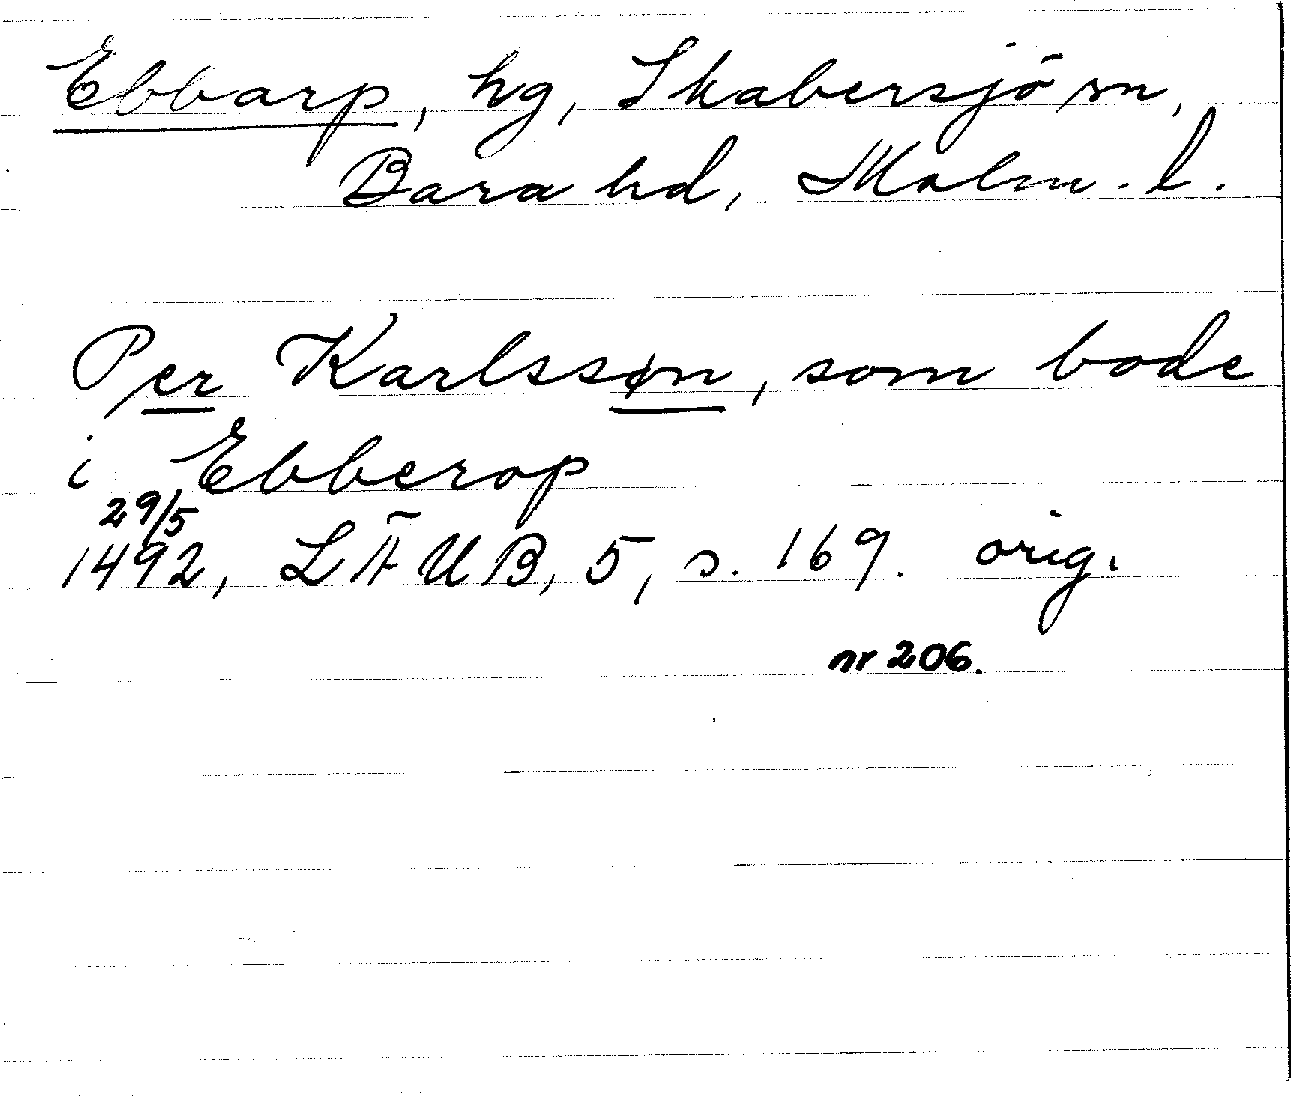 Ebbarp, hg, Skabersjö sn,
Bara hd, Malm. l.
Per Karlssøn, som bode
i Ebberop
29/5
1492, LÄUB, 5, s. 169. orig.
nr 206.